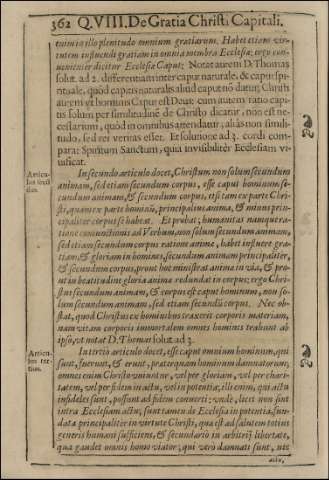 362 Q.VIII. De Gratia Christi Capitali.
tuit in illo plenitudo omnium gratiarum. Habet etiam vir-
tutem influendi gratiam in omnia membra Ecclesiæ; ergo con-
uenienter dicitur Ecclesiæ Caput; Notat autem D. Thomas
solut. ad 2. differentiam inter caput naturale, & caput spiri-
tuale, quòd capitis naturalis aliud caput nō datur; Christi
autem vt hominis Caput est Deus: cum autem ratio capi-
tis solum per similitudinē de Christo dicatur, non est ne-
cessarium, quòd in omnibus attendatur, aliàs non simili-
tudo, sed rei veritas esset. Et solutione ad 3. cordi com-
parat Spiritum Sanctum, quia inuisibiliter Ecclesiam vi-
uificat.
Articu-
lus secū
dus.
In secundo articulo docet, Christum non solum secundum
animam, sed etiam secundum corpus, esse caput hominum se-
cundum animas, & secundum corpus, etsi tam ex parte Chri-
sti, quàm ex parte hominū, principalius anima, & minus prin-
cipaliter corpus se habeat. Et probat; humanitas namque ra-
tione coniunctionis ad Verbum, non solum secundum animam,
sed etiam secundum corpus ratione animæ, habet influere gra-
tiam, & gloriam in homines, secundum animam principaliter,
& secundum corpus, prout hoc ministrat animæ in via, & pro-
ut in beatitudine gloria animæ redundat in corpus: ergo Chri-
stus secundum animam, & corpus est caput hominum, non so-
lum secundum animam, sed etiam secundū corpus. Nec ob-
stat, quod Christus ex hominibus traxerit corporis materiam,
nam vitam corporis immortalem omnes homines trahunt ab
ipso, vt notat D. Thomas solut. ad 3.
Articu-
lus ter-
tius.
In tertio articulo docet, esse caput omnium hominum, qui
sunt, fuerunt, & erunt, præterquam hominum damnatorum;
omnes enim Christo vniuntur, vel per gloriam, vel per chari-
tatem, vel per fidem in actu, vel in potentia; illi enim, qui actu
infideles sunt, possunt ad fidem conuerti: vnde, licet non sint
intra Ecclesiam actu, sunt tamen de Ecclesia in potentia, fun-
data principaliter in virtute Christi, quæ est ad salutem totius
generis humani sufficiens, & secundariò in arbitrij libertate,
qua gaudet omnis homo viator; qui verò damnati sunt, nec
actu,